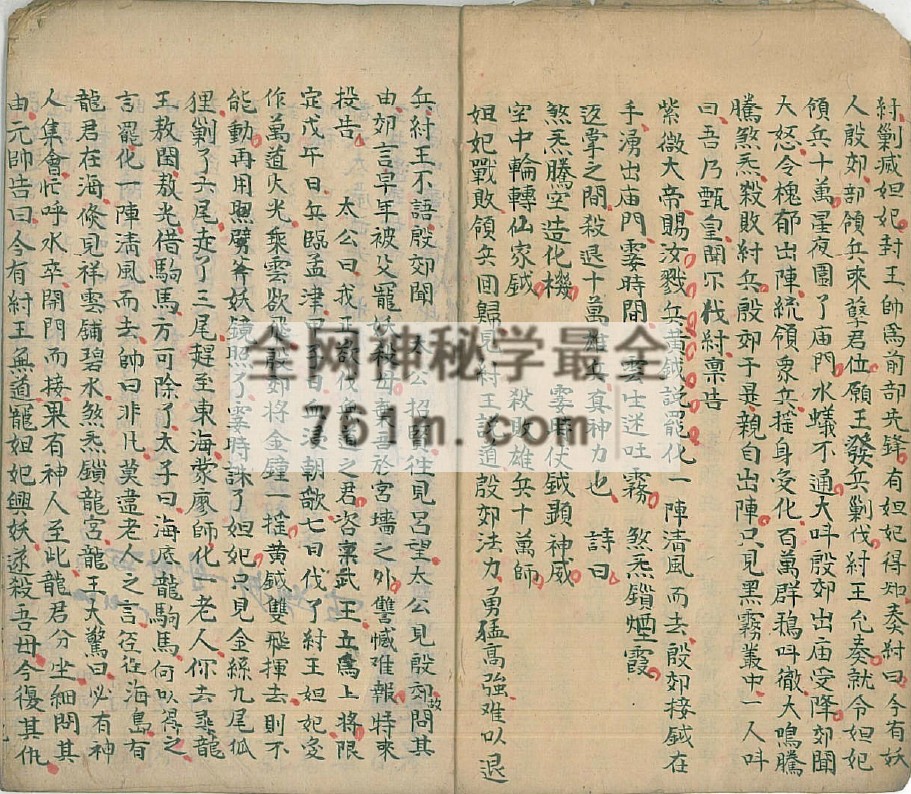 紂剿滅妲妃封王帥為前部先鋒有妲妃得知奏紂曰今有妖
人殷郊部領兵來孽君位願王發兵剿伐紂王允奏就令妲妃
領兵十萬星夜圍了庙門水蟻不通大呌殷郊出庙受降郊聞
大怒令槐郁出陣統領衆兵摇身变化百萬群鵶呌徹大鳴騰
騰煞炁殺敗紂兵殷郊于是親自出陣只見黑霧叢中一人呌
曰吾乃甄皇聞尔伐紂禀告
紫微大帝賜汝戮兵黃鉞説罷化一陣清風而去殷郊接鉞在
手湧出庙門霎時間 迷吐霧煞炁鎖煙霞
返掌之間殺退十萬雄兵真神力也 詩曰
煞炁騰空造化機 霎時伏鉞顕神威
空中輪轉仙家鉞 殺敗雄兵十萬師
妲妃戰敗領兵回歸見紂王説道殷郊法力勇猛高強难以退
兵紂王不語殷郊聞 太公招賢往見呂望太公見殷郊問其故
由郊言早年被父寵妖 母 於宮墻之外讐憾难報特來
投告 太公曰我正欲伐無道之君咨稟武王立為上將限
定戊午日兵臨孟津 朝歌七日伐了紂王妲妃变
作萬道火光乘雲欲飛 郊將金鐘一摇黃鉞雙飛揮去則不
能動再用照 妖鏡照了霎時誅了妲妃只見金絲九尾狐
狸剿了六尾走了三尾趕至東海蒙廖師化一老人你去乘龍
王敖閏敖光借駒馬方可除了太子曰海底龍駒馬何以得之
言罷化一陣清風而去帥曰非凡莫盡老人之言徑往海島有
龍君在海倏見祥雲舖碧水煞炁鎖龍宮龍王大驚曰必有神
人集會忙呼水卒開門而接果有神人至此龍君分坐細問其
由元帥告曰今有紂王無道寵妲妃興妖逐殺吾母今復其仇
全网神秘学最全
761m.com